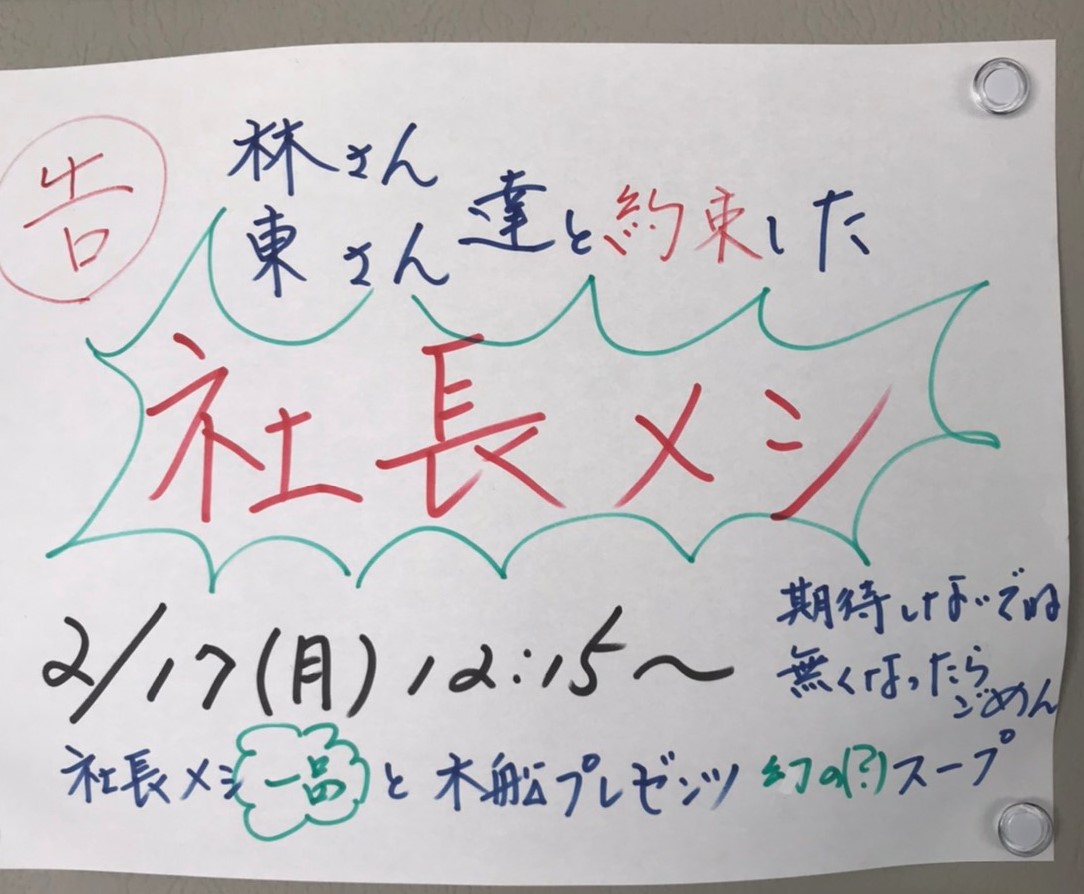 告
林さん
東さん 達と約束した
社長メシ
2/17(月) 12:15〜
期待しないでね
無くなったら
ごめん
社長メシ一品と木船プレゼンツ 幻の(?)スープ